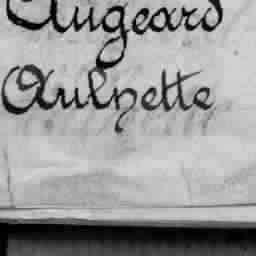 Augeard
Aulnette